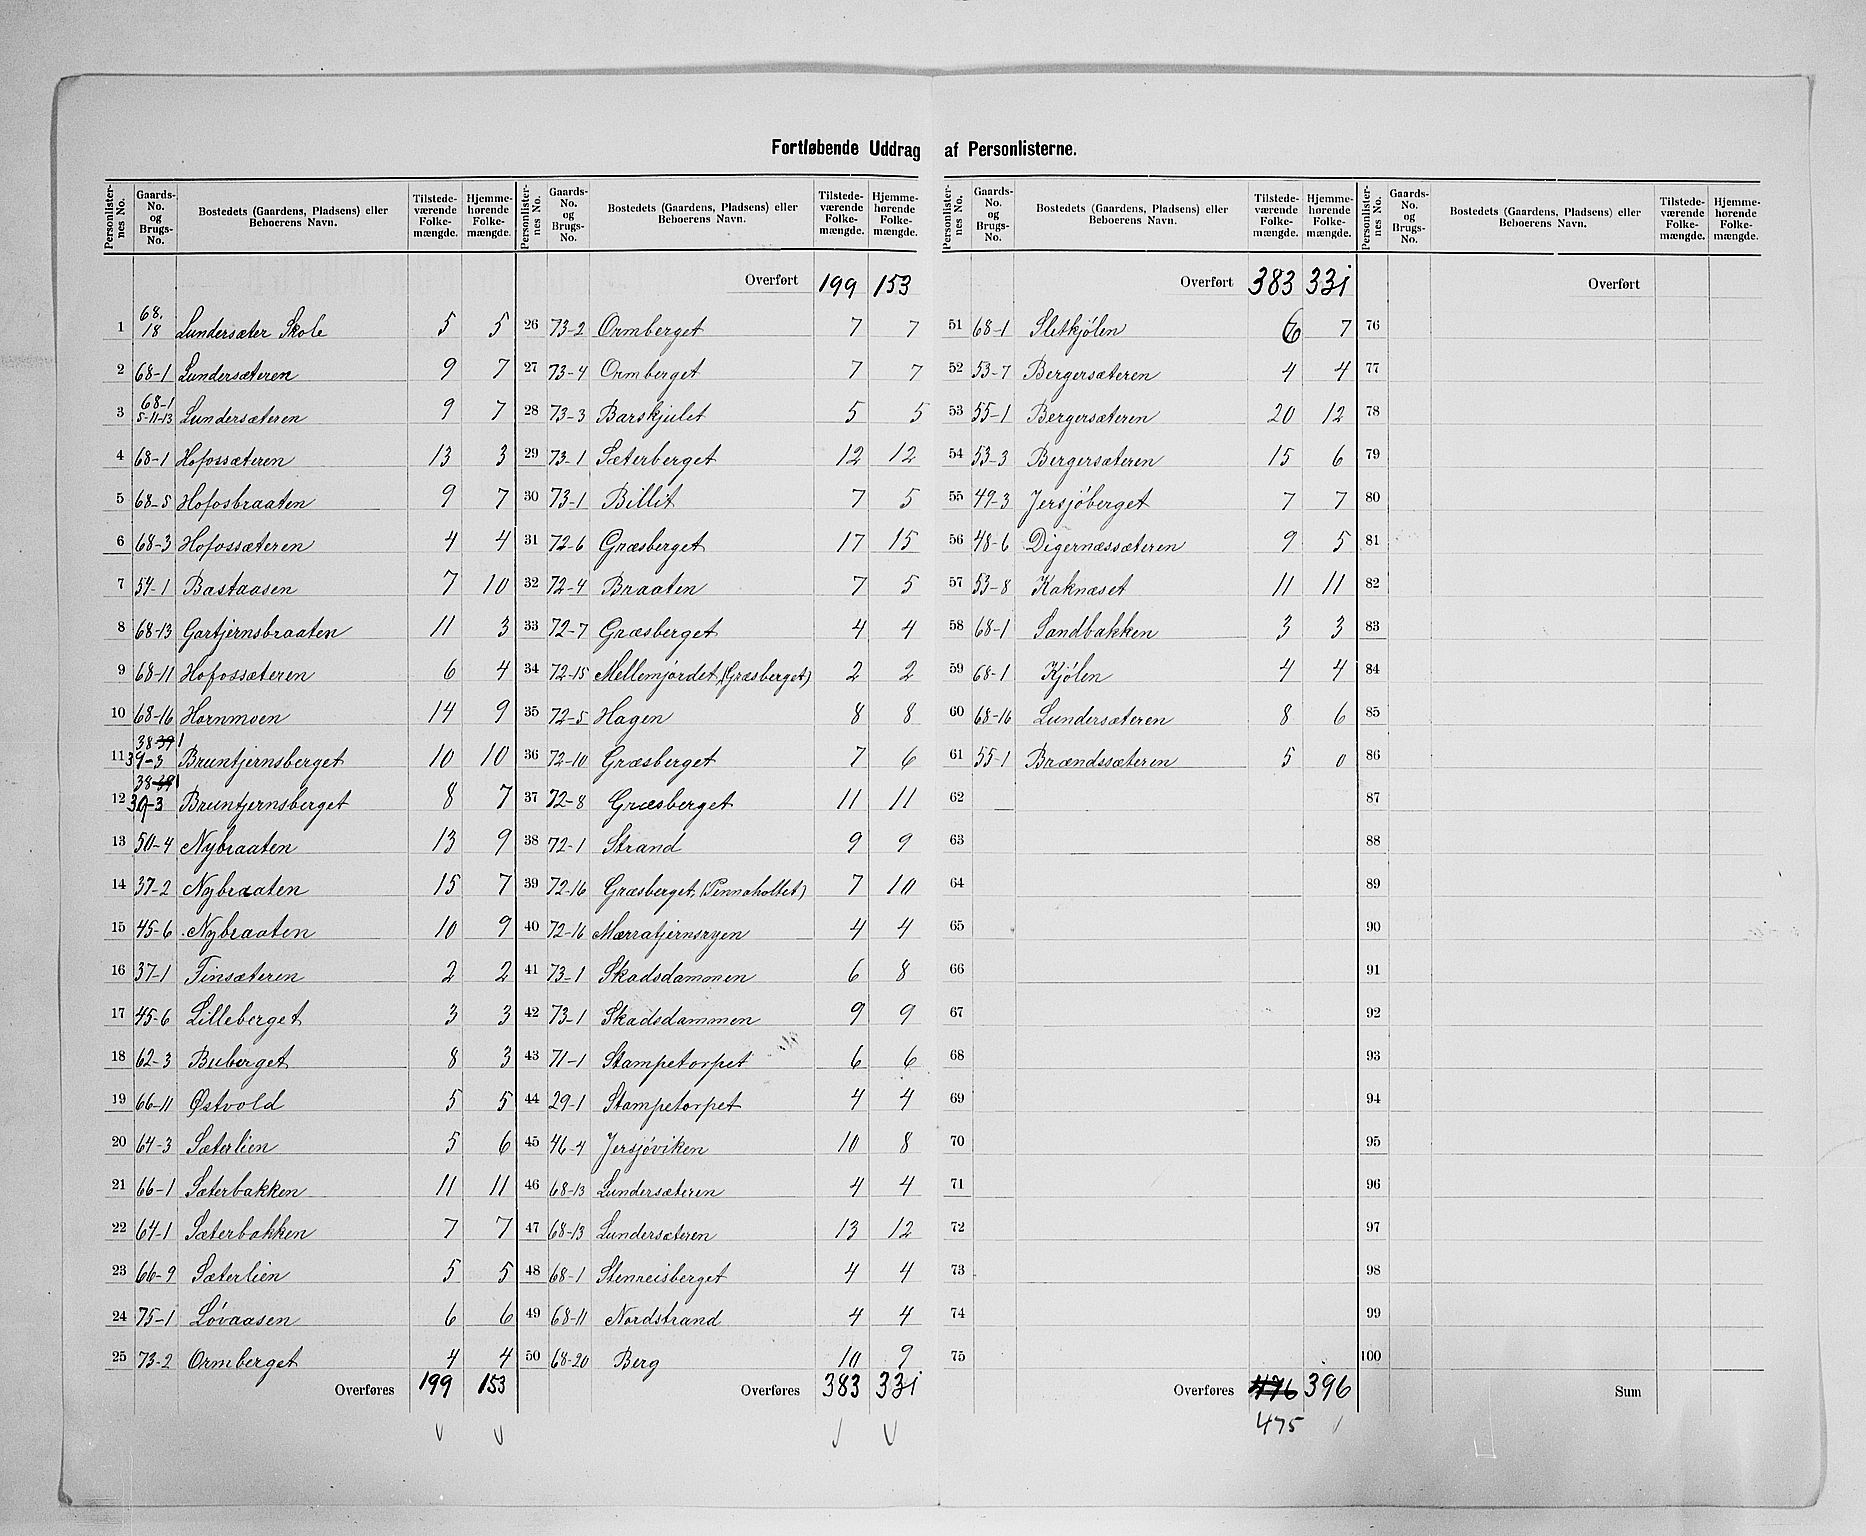 Fortløbende Uddrag af Personlisterne.
Personlister-nes No. | Gaards-No. og Brugs-No. | Bostedets (Gaardens, Pladsens) eller Beboerens Navn. | Tilstede-værende Folke-mængde. | Hjemme-hørende Folke-mængde.
1 68. 18 Lundersæter Skole 5 5
2 68-1 Lundersæteren 9 7
3 68-1 5-11-13 Lundersæteren 9 7
4 68-1 Hofossæteren 13 3
5 68-5 Hofosbraaten 9 7
6 68-3 Hofossæteren 4 4
7 54-1 Bastaasen 7 10
8 68-13 Gartjernsbraaten 11 3
9 68-11 Hofossæteren 6 4
10 68-16 Hornmoen 14 9
11 38 39 1 39-3 Bruntjernsberget 10 10
12 38 39 1 39-3 Bruntjernsberget 8 7
13 50-4 Nybraaten 13 9
14 37-2 Nybraaten 15 7
15 45-6 Nybraaten 10 9
16 37-1 Finsæteren 2 2
17 45-6 Lilleberget 3 3
18 62-3 Buberget 8 3
19 66-11 Østvold 5 5
20 64-3 Sæterlien 5 6
21 66-1 Sæterbakken 11 11
22 64-1 Sæterbakken 7 7
23 66-9 Sæterlien 5 5
24 75-1 Løvaasen 6 6
25 73-2 Ormberget 4 4
Overføres 199 153
Personlister-nes No. | Gaards-No. og Brugs-No. | Bostedets (Gaardens, Pladsens) eller Beboerens Navn. | Tilstede-værende Folke-mængde. | Hjemme-hørende Folke-mængde.
Overført 199 153
26 73-2 Ormberget 7 7
27 73-4 Ormberget 7 7
28 73-3 Barskjulet 5 5
29 73-1 Sæterberget 12 12
30 73-1 Billit 7 5
31 72-6 Græsberget 17 15
32 72-4 Braaten 7 5
33 72-7 Græsberget 4 4
34 72-15 Mellemjordet (Græsberget) 2 2
35 72-5 Hagen 8 8
36 72-10 Græsberget 7 6
37 72-8 Græsberget 11 11
38 72-1 Strand 9 9
39 72-16 Græsberget (Pennaholtet) 7 10
40 72-16 Mærratjernsryen 4 4
41 73-1 Skadsdammen 6 8
42 73-1 Skadsdammen 9 9
43 71-1 Stampetorpet 6 6
44 29-1 Stampetorpet 4 4
45 46-4 Jersjøviken 10 8
46 68-13 Lundersæteren 4 4
47 68-13 Lundersæteren 13 12
48 68-1 Stenreisberget 4 4
49 68-11 Nordstrand 4 4
50 68-20 Berg 10 9
Overføres 383 331
Personlister-nes No. | Gaards-No. og Brugs-No. | Bostedets (Gaardens, Pladsens) eller Beboerens Navn. | Tilstede-værende Folke-mængde. | Hjemme-hørende Folke-mængde.
Overført 383 331
51 68-1 Sletkjølen 6 7
52 53-7 Bergersæteren 4 4
53 55-1 Bergersæteren 20 12
54 53-3 Bergersæteren 15 6
55 49-3 Jersjøberget 7 7
56 48-6 Digernæssæteren 9 5
57 53-8 Kaknæset 11 11
58 68-1 Sandbakken 3 3
59 68-1 Kjølen 4 4
60 68-16 Lundersæteren 8 6
61 55-1 Brændssæteren 5 0
62
63
64
65
66
67
68
69
70
71
72
73
74
75
Overføres 476 396
475
Personlister-nes No. | Gaards-No. og Brugs-No. | Bostedets (Gaardens, Pladsens) eller Beboerens Navn. | Tilstede-værende Folke-mængde. | Hjemme-hørende Folke-mængde.
Overført
76
77
78
79
80
81
82
83
84
85
86
87
88
89
90
91
92
93
94
95
96
97
98
99
100
Sum